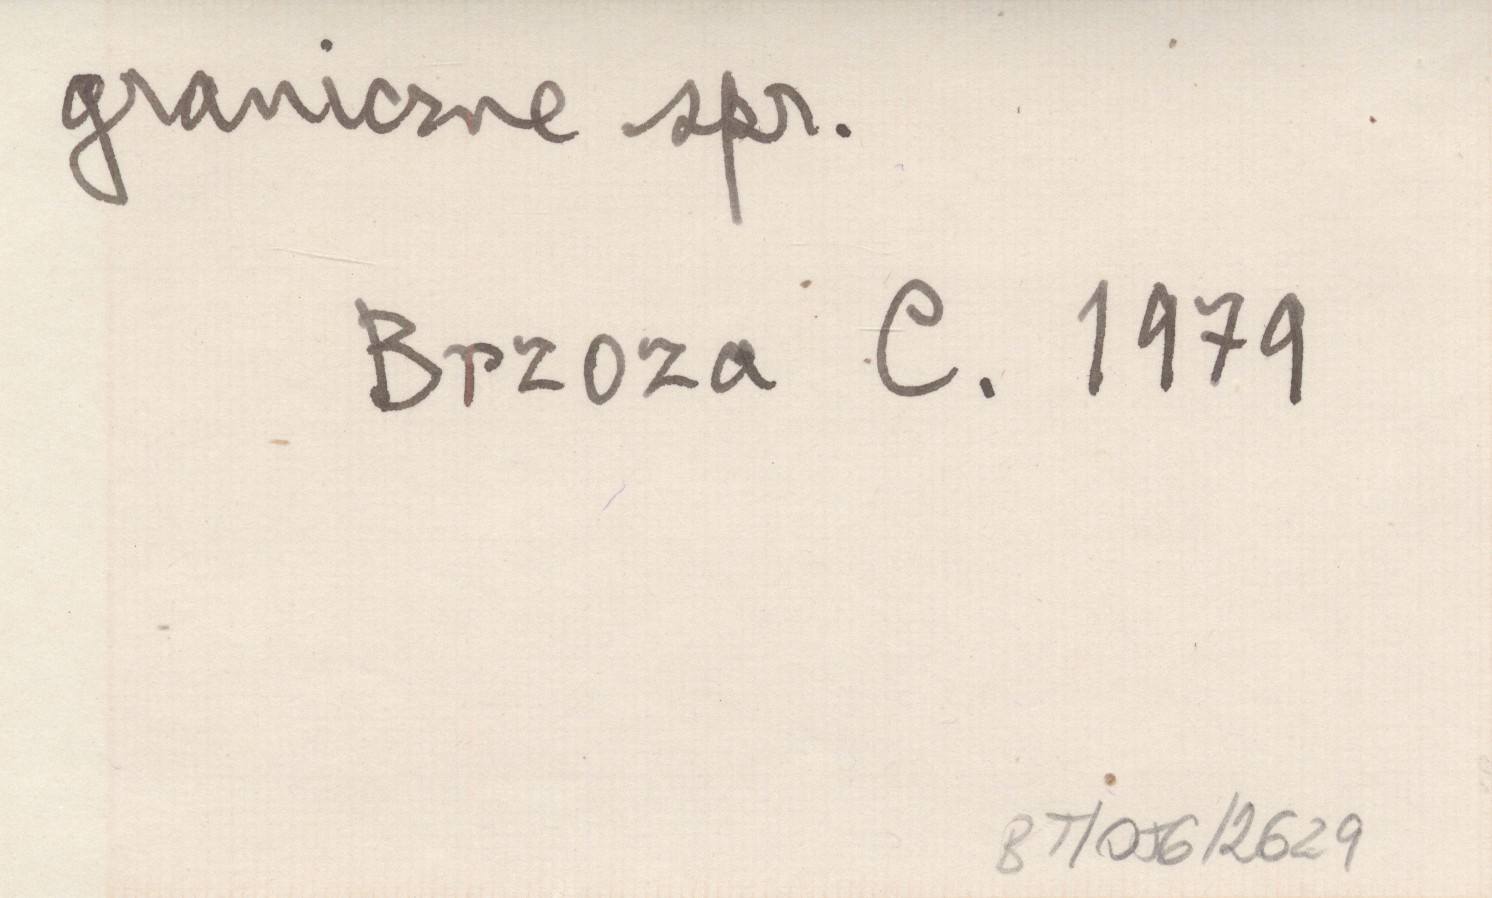 graniczne spr.
Brzoza C. 1979
BT/OJG/2629